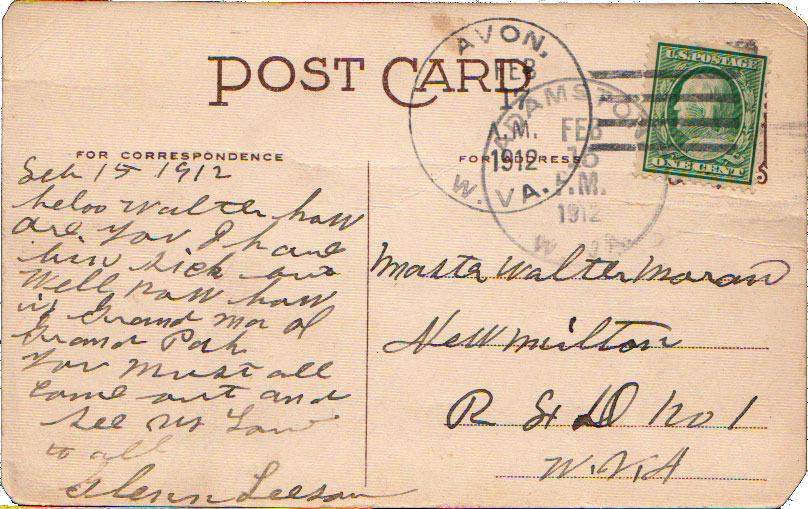 POST CARD
FOR CORRESPONDENCE
FOR ADDRESS
AVON,
FEB
17
A.M.
1912
W. VA.
ADAMSTON
FEB
16
M.
1912
W. VA
U.S. POSTAGE
ONE CENT
Feb 15 1912
heloo Walter how
are you I have
bin sick but
Well now how
is Grand ma &
Grand Pah
You must all
Come out and
See us Love
to all
Glenn Leeson
Master Walter Moran
New milton
R F D No 1
W.VA